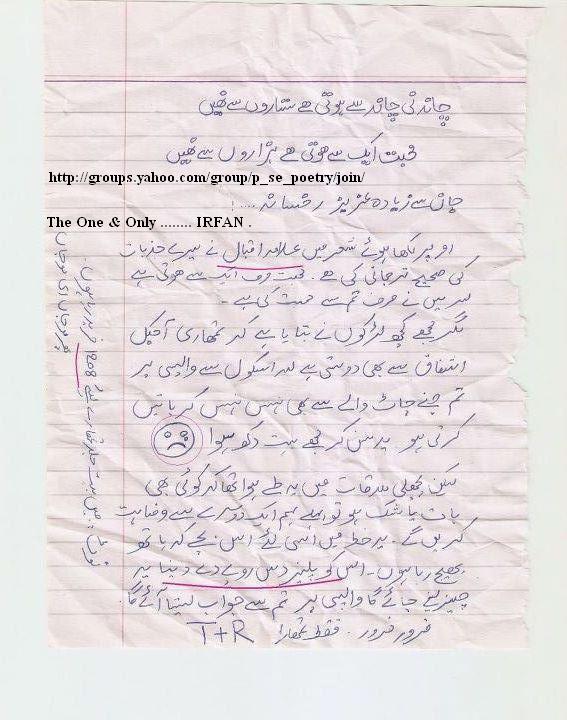 چاندنی چاند سے ہوتی ہے ستاروں سے نہیں
محبت ایک سے ہوتی ہے ہزاروں سے نہیں
http://groups.yahoo.com/group/p_se_poetry/join/
جان سے زیادہ عزیز رخسانہ .....!
The One & Only ........ IRFAN .
اوپر لکھا ہوئے شعر میں علامہ اقبال نے میرے جذبات
کی صحیح ترجمانی کی ہے۔ محبت صرف ایک سے ہوتی ہے
اور میں نے صرف تم سے محبت کی ہے۔
مگر مجھے کچھ لڑکوں نے بتایا ہے کہ تمھاری آجکل
اشفاق سے بھی دوستی ہے اور اسکول سے واپسی پر
تم چنے چاٹ والے سے بھی ہنس ہنس کر باتیں
کرتی ہو۔ یہ سن کر مجھے بہت دکھ ہوا
لیکن پچھلی ملاقات میں یہ طے ہوا تھا کہ کوئی بھی
بات یا شک ہو تو پہلے ہم ایک دوسرے سے وضاحت
کریں گے۔ یہ خط میں اسی لئے اس بچے کے ہاتھ
بھیج رہا ہوں۔ اس کو پلیز دس روپے دے دینا یہ
چیز لینے جائے گا واپسی پر تم سے جواب لیتا آئے گا۔
ضرور ضرور۔ فقط تمھارا T+R
میں بہت جلد تمھارے لئے 1208 خرید رہا ہوں۔
پھر موجاں ای موجاں